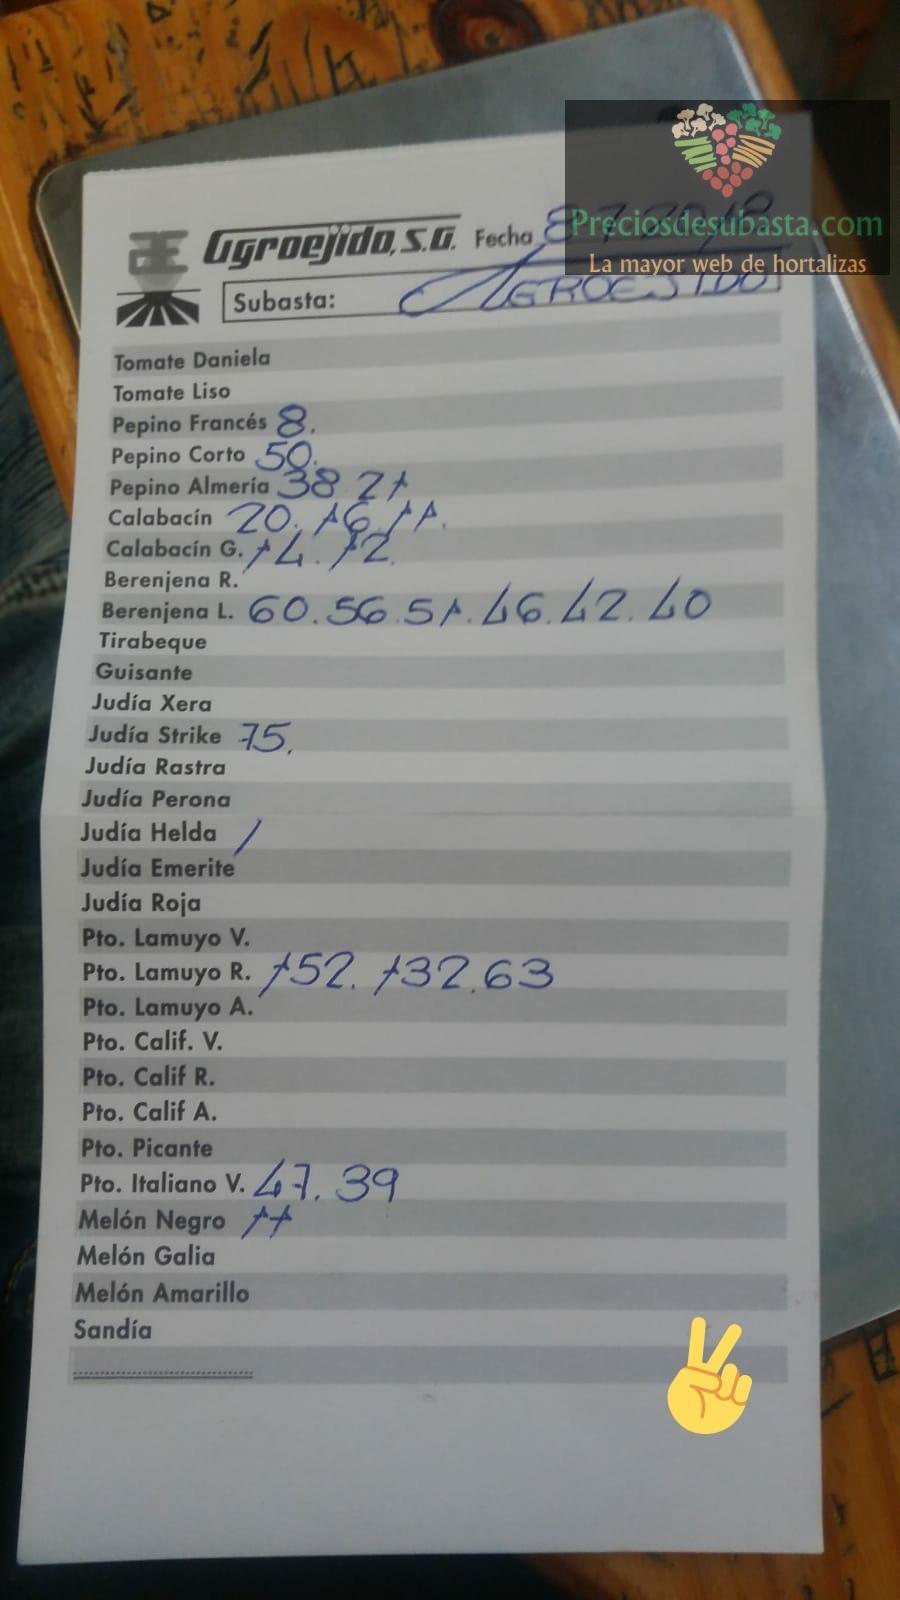 Agroejido, S.A. Fecha 8-7-2018
Preciosdesubasta.com
La mayor web de hortalizas
Subasta: AGROEJIDO
Tomate Daniela
Tomate Liso
Pepino Francés 8.
Pepino Corto 50.
Pepino Almería 38 21
Calabacín 20. 16. 11.
Calabacín G. 14. 12.
Berenjena R.
Berenjena L. 60. 56. 51. 46. 42. 40
Tirabeque
Guisante
Judía Xera
Judía Strike 75.
Judía Rastra
Judía Perona
Judía Helda /
Judía Emerite
Judía Roja
Pto. Lamuyo V.
Pto. Lamuyo R. 152. 132. 63
Pto. Lamuyo A.
Pto. Calif. V.
Pto. Calif R.
Pto. Calif A.
Pto. Picante
Pto. Italiano V. 47. 39
Melón Negro 11
Melón Galia
Melón Amarillo
Sandía